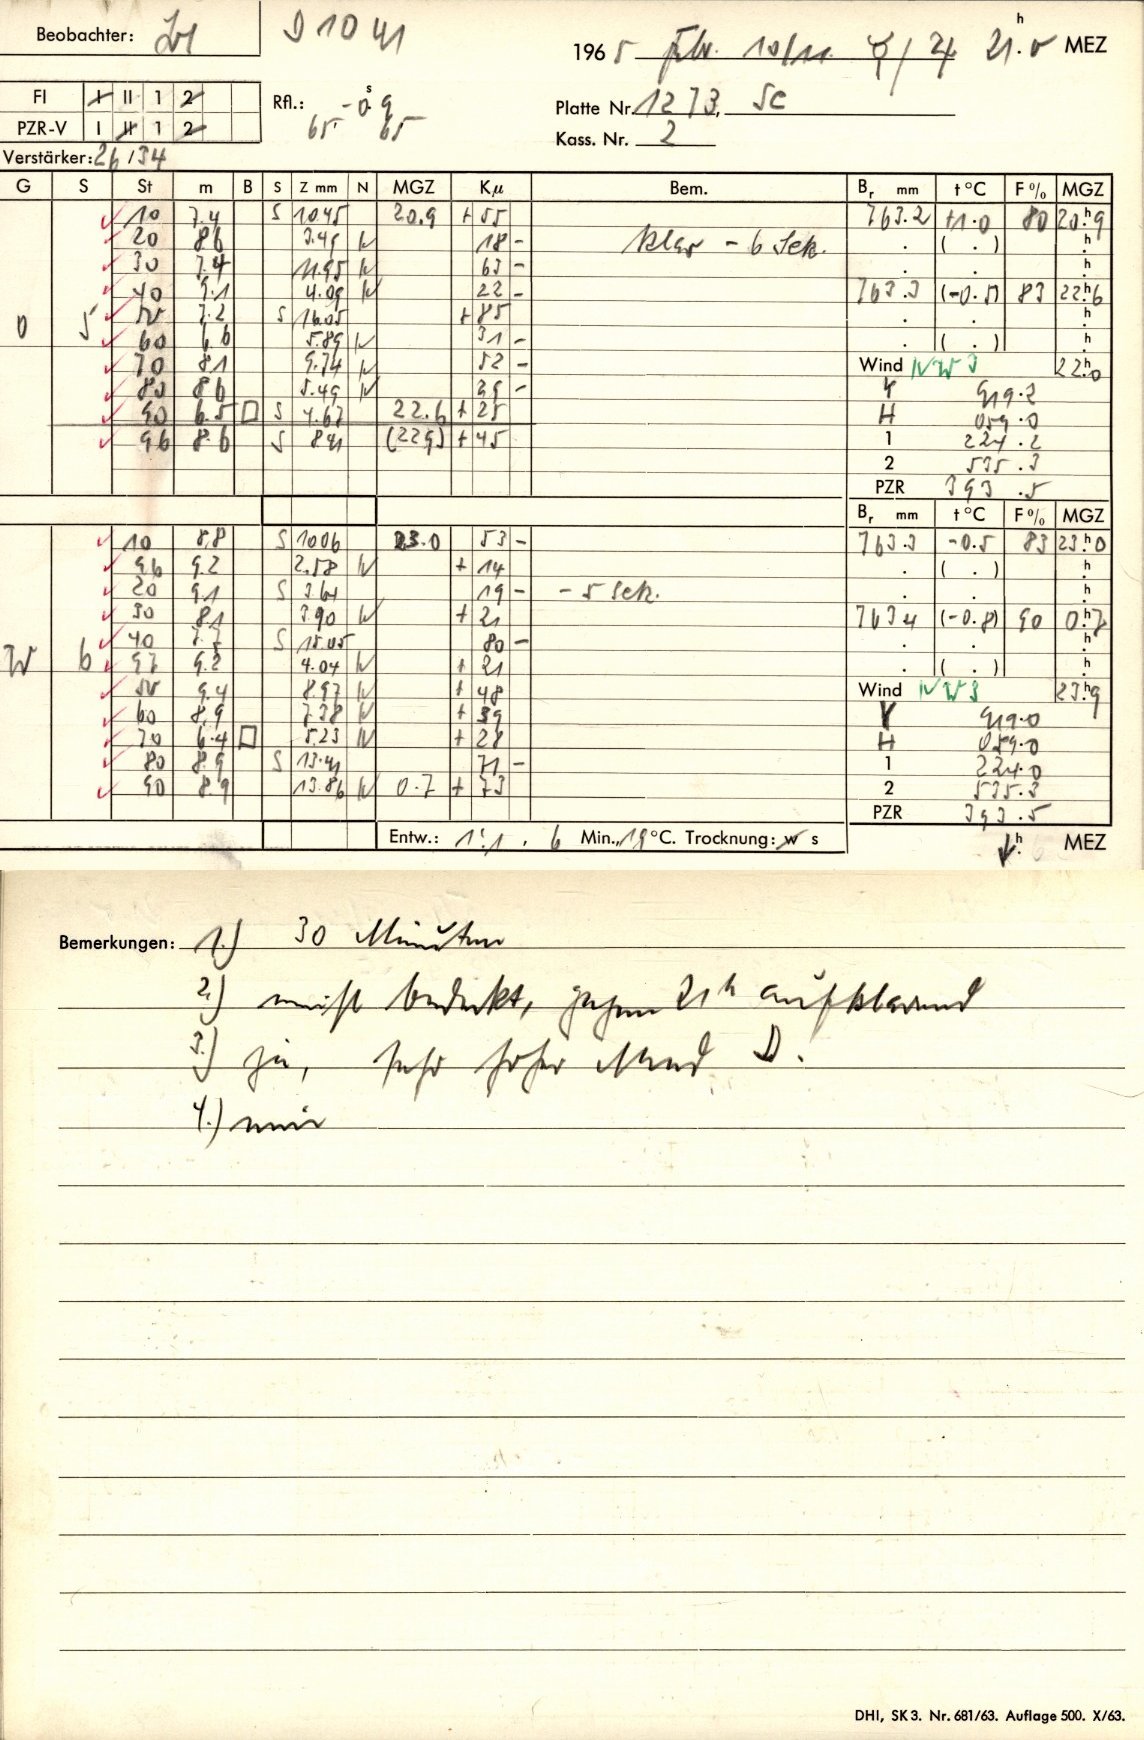 Beobachter:
D 10 41
1965 Febr. 10/11. ☿/♃ 21.0 h MEZ
FI I II 1 2
Rfl.: -0.9 s
65 65
Platte Nr. 1273, Sc
PZR-V I II 1 2
Kass. Nr. 2
Verstärker: 26/34
G S St m B S Z mm N MGZ Kµ Bem. Br mm t°C F% MGZ
10 7.4 S 10.45 20.9 + 55 763.2 +1.0 80 20.9 h
20 8.6 3.49 N 18 - klar - 6 Sek. ( . ) h
30 7.4 11.95 N 63 - h
40 9.1 4.09 N 22 - 763.3 (-0.5) 83 22.6 h
O 5 50 7.2 S 16.05 + 85 h
60 6.6 5.89 N 31 - ( . ) h
70 8.1 9.74 N 52 - Wind NW 3 22.0 h
80 8.6 5.49 N 29 - Y 919.2
90 6.5 □ S 4.67 22.6 + 25 H 059.0
96 8.6 S 8.41 (22.9) + 45 1 224.2
2 535.3
PZR 393.5
Br mm t°C F% MGZ
10 8.8 S 10.06 23.0 53 - 763.3 -0.5 83 23.0 h
96 9.2 2.58 N + 14 ( . ) h
20 9.1 S 3.61 19 - - 5 Sek. h
30 8.1 3.90 N + 21 763.4 (-0.8) 90 0.7 h
40 7.7 S 15.05 80 - h
W 6 97 9.2 4.04 N + 21 ( . ) h
50 9.4 8.97 N + 48 Wind NW 3 23.9 h
60 8.9 7.38 N + 39 Y 919.0
70 6.4 □ 5.23 N + 28 H 059.0
80 8.9 S 13.41 71 - 1 224.0
90 8.9 13.86 N 0.7 + 73 2 535.3
PZR 393.5
Entw.: 1:1, 6 Min., 19°C. Trocknung: w s h MEZ
Bemerkungen: 1.) 30 Minuten
2.) meist bedeckt, gegen 21h aufklarend
3.) ja, sehr hoher Mond D.
4.) nein
DHI, SK 3. Nr. 681/63. Auflage 500. X/63.